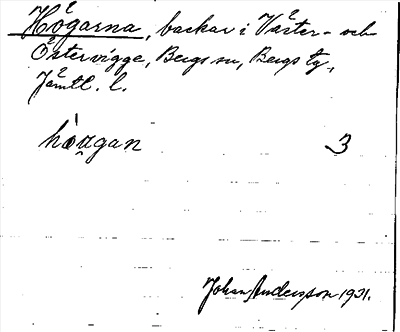 Högarna, backar i Väster- och
Östervigge, Bergs sn, Bergs tg,
Jämtl. l.
hòu̯gan 3
Johan Andersson 1931.